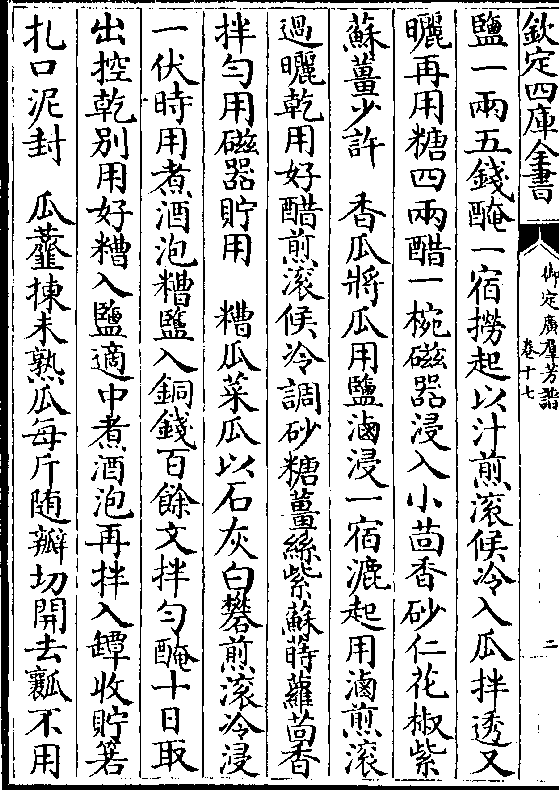 欽定四庫全書
御定廣羣芳譜
卷十七
二
鹽一兩五錢醃一宿撈起以汁煎滾候冷入瓜拌透又
曬再用糖四兩醋一椀磁器浸入小茴香砂仁花椒紫
蘇薑少許　香瓜將瓜用鹽滷浸一宿漉起用滷煎滾
過曬乾用好醋煎滾候冷調砂糖薑絲紫蘇蒔蘿茴香
拌勻用磁器貯用　糟瓜菜瓜以石灰白礬煎滾冷浸
一伏時用煮酒泡糟鹽入銅錢百餘文拌勻醃十日取
出控乾别用好糟入鹽適中煮酒泡再拌入罈收貯箬
扎口泥封　瓜虀揀未熟瓜每斤随瓣切開去瓤不用